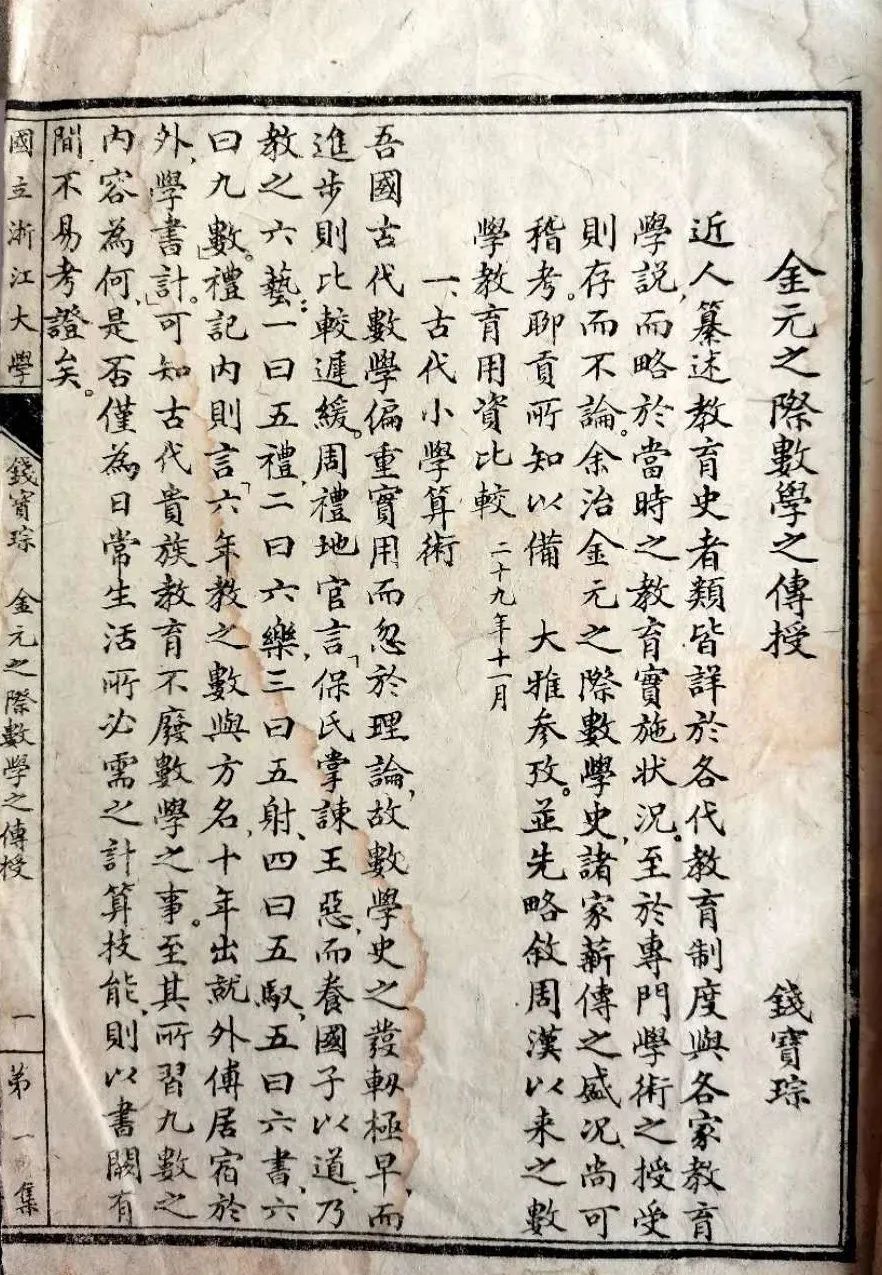 金元之際數學之傳授　錢寶琮
近人纂述教育史者類皆詳於各代教育制度與各家教育
學說，而略於當時之教育實施狀況。至於專門學術之授受
則存而不論。余治金元之際數學史，諸家薪傳之盛況，尚可
稽考。聊貢所知以備　大雅參攷。並先略敘周漢以來之數
學教育用資比較　二十九年十一月
一、古代小學算術
吾國古代數學偏重實用而忽於理論，故數學史之發軔極早，而
進步則比較遲緩。周禮地官言「保氏掌諫王惡，而養國子以道，乃
教之六藝：一曰五禮，二曰六樂，三曰五射，四曰五馭，五曰六書，六
曰九數」。禮記內則言「六年教之數與方名，十年出就外傅居宿於
外，學書計」。可知古代貴族教育不廢數學之事。至其所習九數之
內容為何，是否僅為日常生活所必需之計算技能，則以書闕有
間，不易考證矣。
國立浙江大學　錢寶琮　金元之際數學之傳授　一　第一集